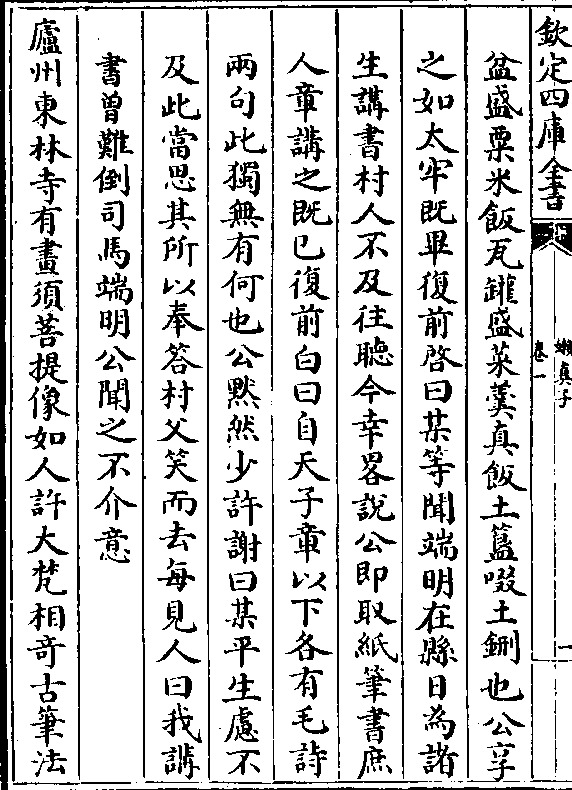 欽定四庫全書
嬾真子
卷一
一
盆盛粟米飯瓦罐盛菜羮真飯土簋啜土鉶也公享
之如太牢既畢復前啓曰某等聞端明在縣日為諸
生講書村人不及往聽今幸畧說公即取紙筆書庶
人章講之既已復前白曰自天子章以下各有毛詩
兩句此獨無有何也公黙然少許謝曰某平生慮不
及此當思其所以奉答村父笑而去每見人曰我講
書曾難倒司馬端明公聞之不介意
廬州東林寺有畫須菩提像如人許大梵相竒古筆法